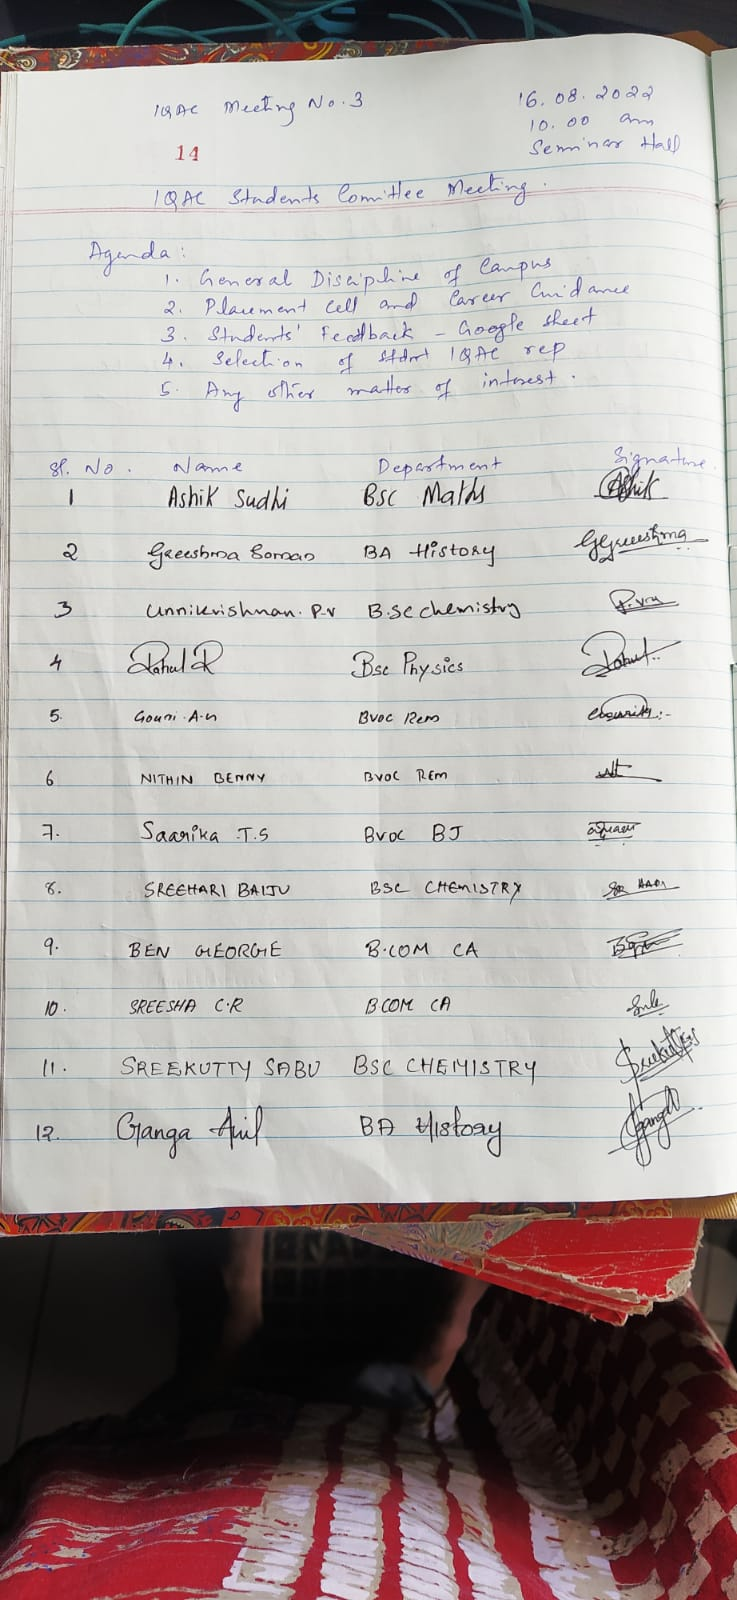 IQAC Meeting No. 3
16.08.2022
10.00 am
Seminar Hall
14
IQAC Students Comittee Meeting.
Agenda:
1. General Discipline of Campus
2. Placement Cell and Career Guidance
3. Students' Feedback - Google sheet
4. Selection of Stdnt IQAC rep
5. Any other matter of interest.
Sl. No. Name Department Signature
1 Ashik Sudhi BSc Maths Ashik
2 Greeshma Soman BA History Greeshma
3 Unnikrishnan. P.V B.Sc chemistry
4 Rahul R Bsc Physics Rahul
5. Gouri A.N BVOC Rem
6 NITHIN BENNY BVOC REM
7. Saarika T.S BVOC BJ
8. SREEHARI BAIJU BSC CHEMISTRY
9. BEN GEORGIE B.COM CA
10. SREESHA C.R BCOM CA
11. SREEKUTTY SABU BSC CHEMISTRY
12. Ganga Anil BA History